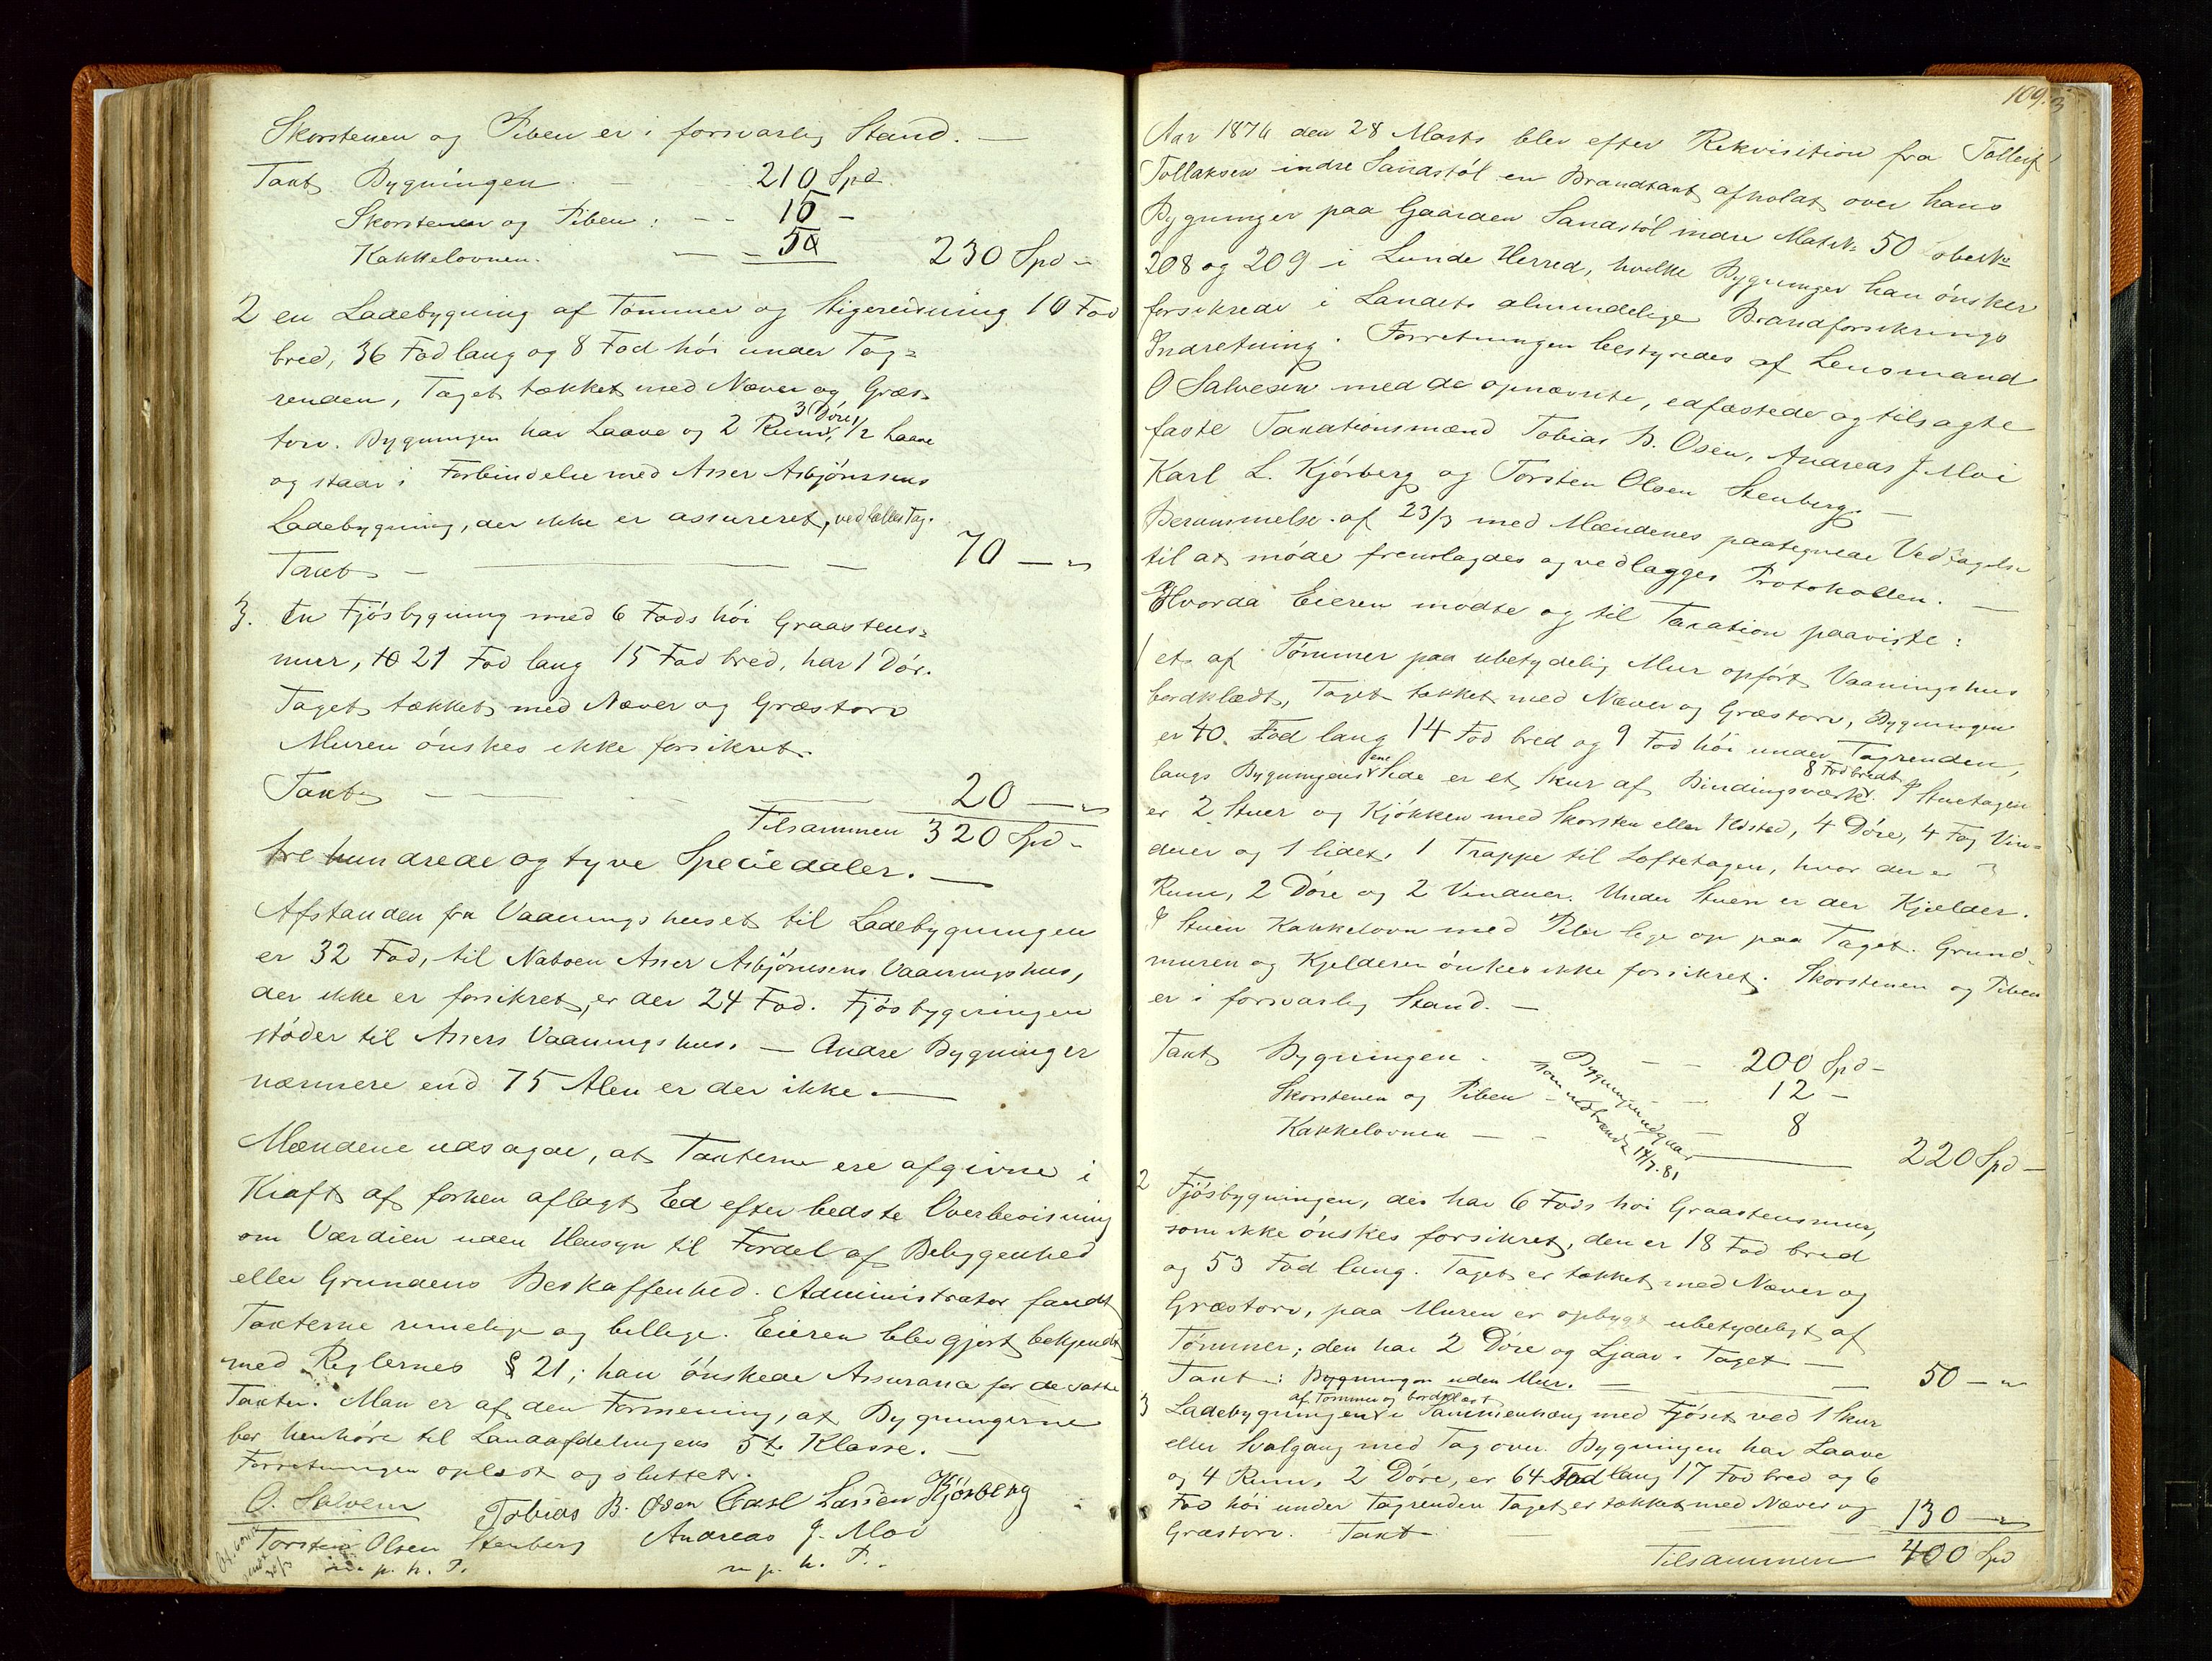 Skorstenen og Piben er i forsvarlig Stand. —
Taxt Bygningen — 210 Spd
Skorstenen og Piben: — 15 —
Kakkelovnen. — 5 230 Spd „
2 en Ladebygning af Tømmer og Stigereisning 10 Fod
bred, 36 Fod lang og 8 Fod høi under Tag=
renden, Taget tækket med Næver og Græs
torv. Bygningen har Laave og 2 Rum, 3 Døre 1/2 Laave
og staar i Forbindelse med Asser Asbjørnsens
Ladebygning, der ikke er assureret, ved fælles Tag.
Taxt — 70 — „
3. En Fjøsbygning med 6 Fods høi Graastens=
mur, 21 Fod lang 15 Fod bred, har 1 Dør.
Taget tækket med Næver og Græstorv
Muren ønskes ikke forsikret.
Taxt — 20 — „
Tilsammen 320 Spd „
tre hundrede og tyve Speciedaler. —
Afstanden fra Vaaningshuset til Ladebygningen
er 32 Fod, til Naboen Asser Asbjørnsens Vaaningshus,
der ikke er forsikret, er der 24 Fod. Fjøsbygningen
støder til Assers Vaaningshus. — Andre Bygninger
nærmere end 75 Alen er der ikke. —
Mændene udsagde, at Taxterne ere afgivne i
Kraft af forhen aflagt Ed efter bedste Overbevisning
om Værdien uden Hensyn til Fordel af Beliggenhed
eller Grundens Beskaffenhed. Administrator fandt
Taxterne rimelige og billige. Eieren blev gjort bekjendt
med Reglernes § 21; han ønskede Assurance for de satte
Taxter. Man er af den Formening, at Bygningerne
bør henhøre til Landafdelingens 5te Klasse. —
Forretningen oplæst og sluttet.
O. Salvesen Tobias B. Osen Carl Larsen Kjørberg
Torsten Olsen Stenberg Andreas J. Moi
m. p. h. P. m. p. h. P.
109.
Aar 1874 den 28 Marts blev efter Rekvisition fra Tolleif
Tollaksen indre Sandstøl en Brandtaxt afholdt over hans
Bygninger paa Gaarden Sandstøl indre Matrk. 50
208 og 209 i Lunde Herred, hvilke Bygninger han ønsker
forsikrede i Landets almindelige Brandforsikrings
Indretning. Forretningen bestyredes af Lensmand
O Salvesen med de opnævnte, edfæstede og tilsagte
faste Taxationsmænd Tobias B. Osen, Andreas J. Moi
Karl L. Kjørberg og Torsten Olsen Stenberg. —
Berammelse af 23/3 med Mændenes paategnede Vedtagelse
til at møde fremlagdes og vedlægges Protokollen. —
Hvorda Eieren mødte og til Taxation paaviste:
1 et af Tømmer paa ubetydelig Mur opført Vaaningshus
bordklædt, Taget tækket med Næver og Græstorv, Bygningen
er 40 Fod lang 14 Fod bred og 9 Fod høi under Tagrenden,
langs Bygningens ene Side er et Skur af Bindingsværk 8 Fod bredt. I Stuetagen
er 2 Stuer og Kjøkken med Skorsten eller Ildsted, 4 Døre, 4 Fag Vin=
duer og 1 lidet. 1 Trappe til Loftetagen, hvor der er 3
Rum, 2 Døre og 2 Vinduer. Under Stuen er der Kjelder.
I Stuen Kakkelovn med Piber lige op paa Taget. Grund=
muren og Kjelderen ønskes ikke forsikret. Skorstenen og Piben
er i forsvarlig Stand. —
Taxt Bygningen — 200 Spd —
Skorstenen og Piben — 12 —
Kakkelovnen — 8
220 Spd —
Bygningen udgaar
som nedbrændt 14/7. 81
2 Fjøsbygningen, der har 6 Fods høi Graastensmur,
som ikke ønskes forsikret, den er 18 Fod bred
og 53 Fod lang. Taget er tækket med Næver og
Græstorv, paa Muren er opbygt ubetydeligt af
Tømmer; den har 2 Døre og Ljaar i Taget —
Taxt: Bygningen uden Mur. — 50 — „
3 Ladebygningen af Tømmer og bordklædt i Sammenhæng med Fjøset ved 1 Skur
eller Svalgang med Tag over. Bygningen har Laave
og 4 Rum, 2 Døre, er 64 Fod lang 17 Fod bred og 6
Fod høi under Tagrenden Taget er tækket med Næver og
Græstorv. Taxt — 130 — „
Tilsammen 400 Spd